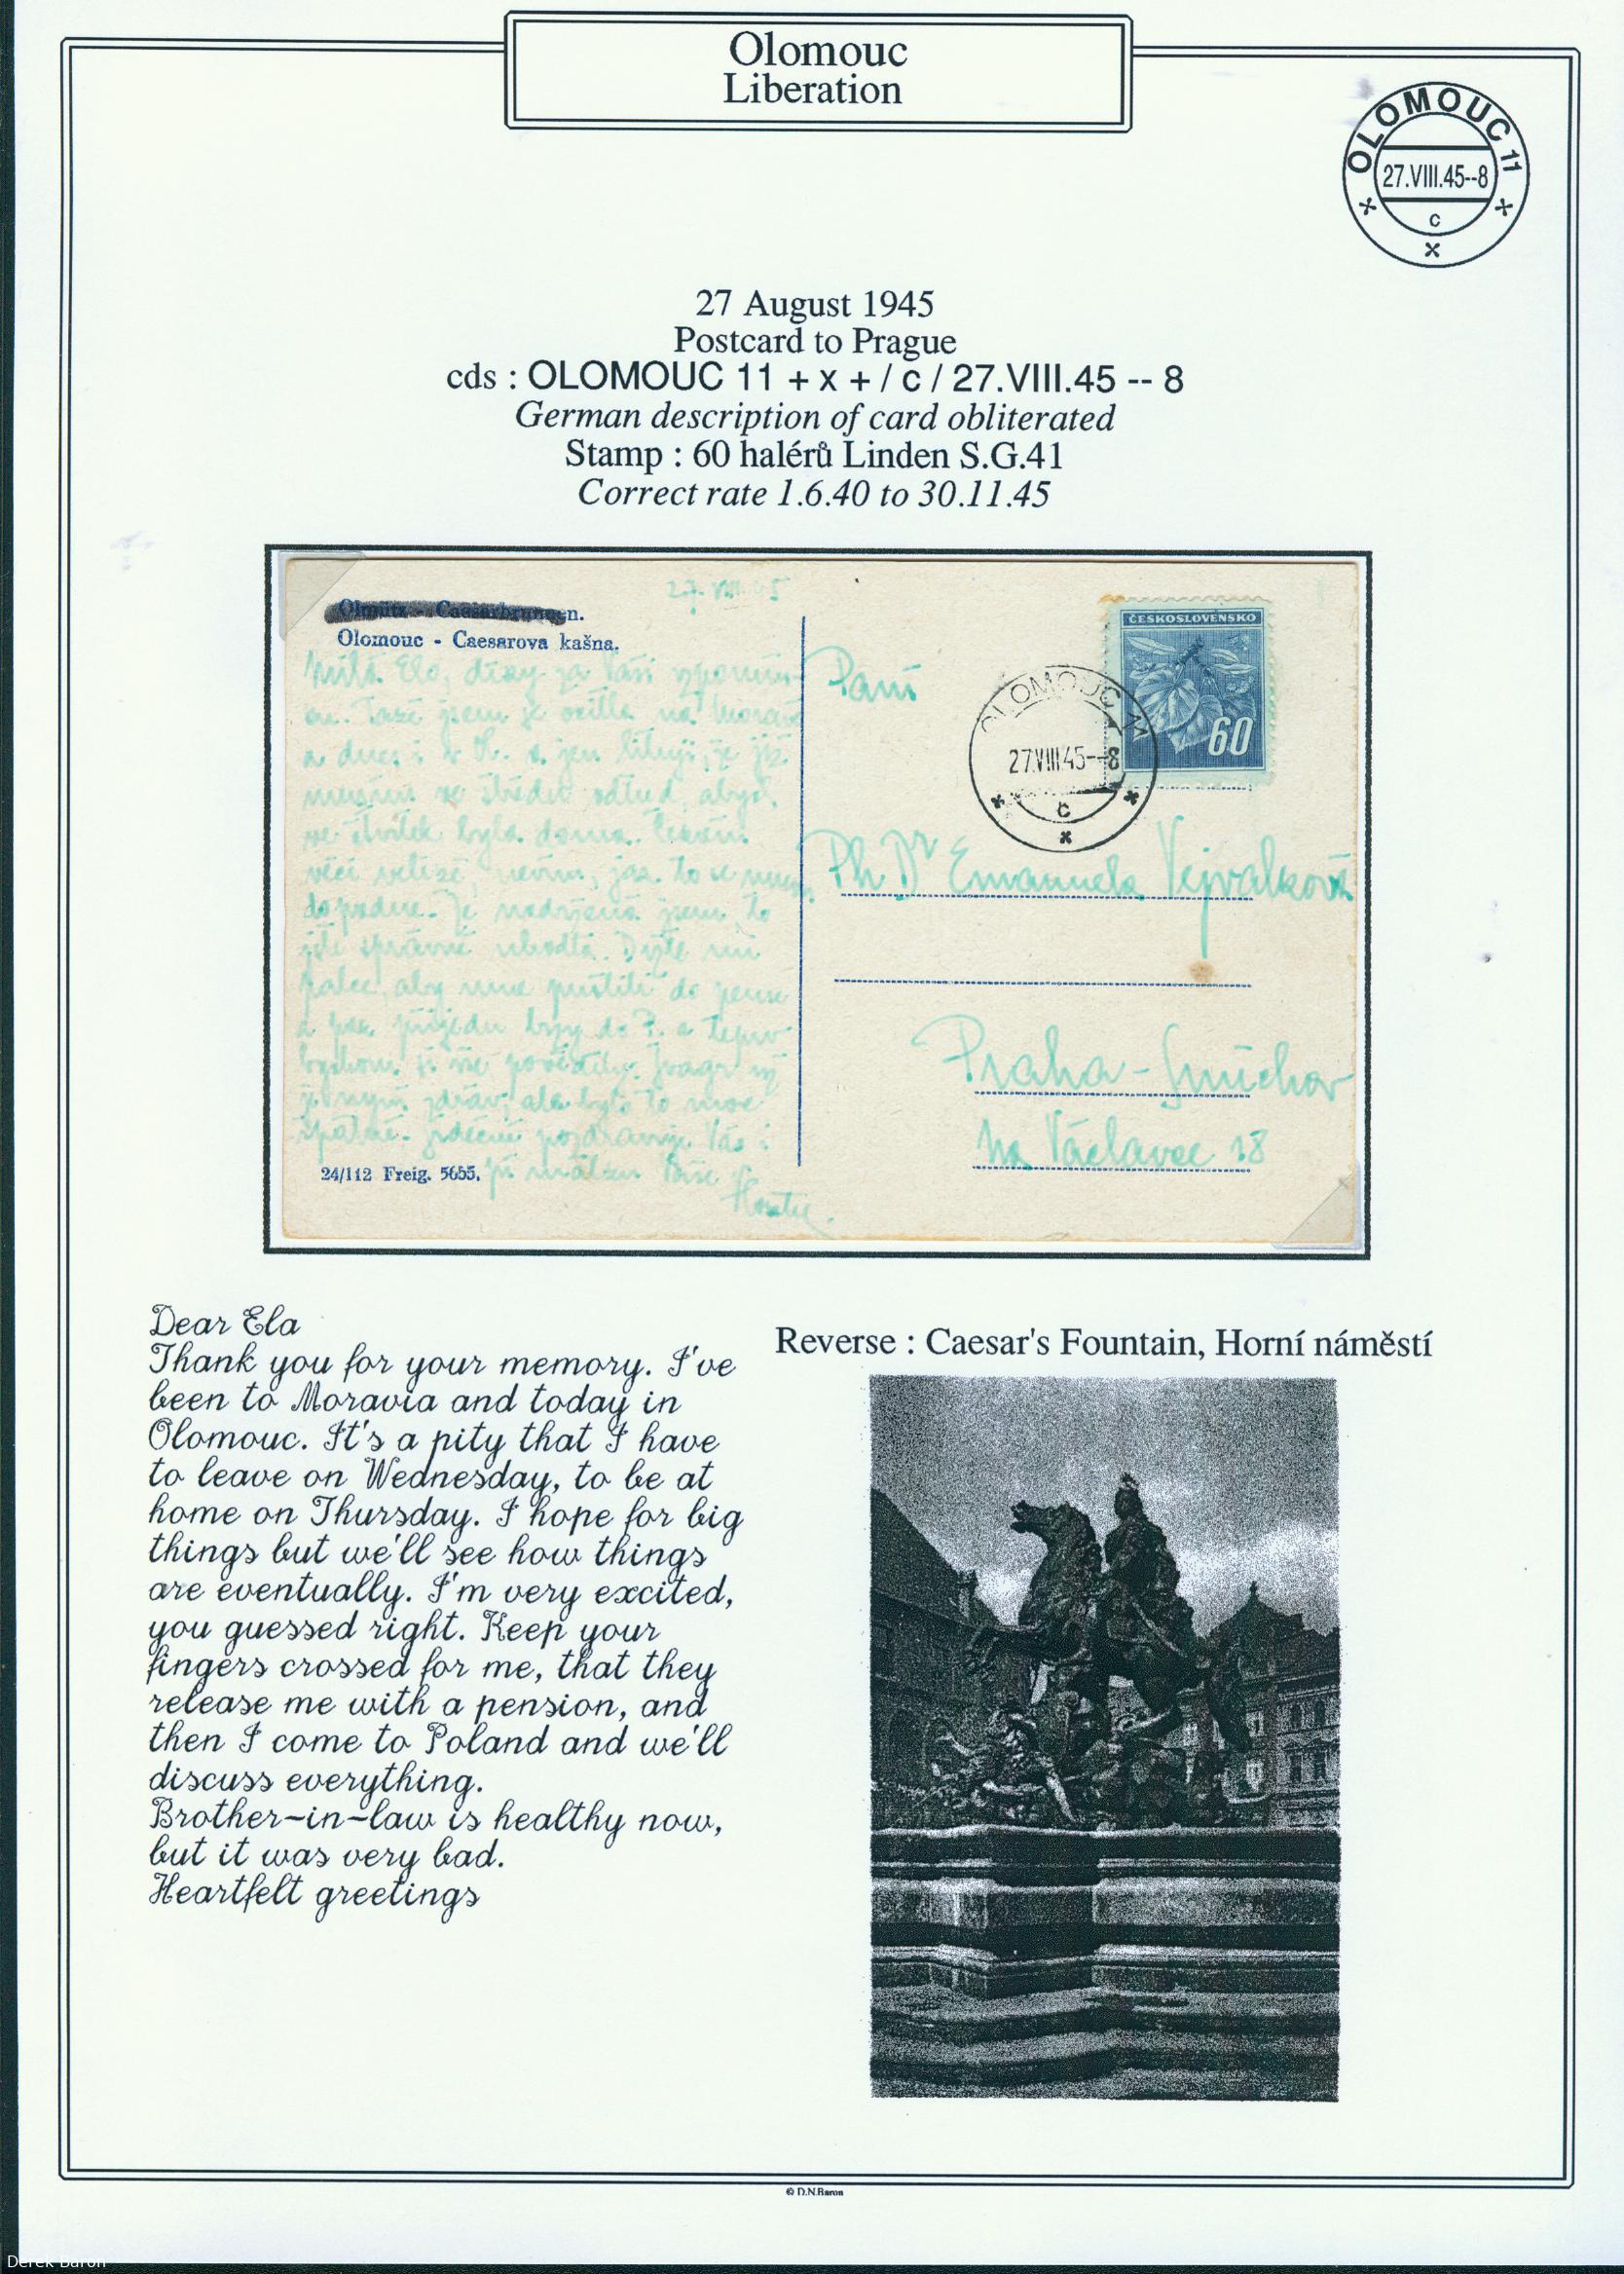 Olomouc
Liberation
OLOMOUC 11
27.VIII.45--8
c
27 August 1945
Postcard to Prague
cds : OLOMOUC 11 + x + / c / 27.VIII.45 -- 8
German description of card obliterated
Stamp : 60 halérů Linden S.G.41
Correct rate 1.6.40 to 30.11.45
27. VIII 45
Olmütz - Caesarbrunnen.
Olomouc - Caesarova kašna.
ČESKOSLOVENSKO
60
OLOMOUC 11
27.VIII.45--8
c
Milá Elo, díky za Vaši
a dnes i v Ol. a jen lituji, že již
musím ve středu odtud, abych
ve čtvrtek byla doma. Čekám
věcí
dopadne. Je jsem, to
jste správně uhodla. Držte mi
palec, aby mne pustili do pense
a pak přijedu do P. a teprv
bychom si vše pověděly. Švagr
zdráv, ale bylo to moc
špatné. Srdečně pozdravuje Vás i
Vaše
Paní
Ph Dr Emanuela Vejvalková
Praha - Smíchov
Na Václavce 18
24/112 Freig. 5655.
Dear Ela
Thank you for your memory. I've
been to Moravia and today in
Olomouc. It's a pity that I have
to leave on Wednesday, to be at
home on Thursday. I hope for big
things but we'll see how things
are eventually. I'm very excited,
you guessed right. Keep your
fingers crossed for me, that they
release me with a pension, and
then I come to Poland and we'll
discuss everything.
Brother-in-law is healthy now,
but it was very bad.
Heartfelt greetings
Reverse : Caesar's Fountain, Horní náměstí
© D.N.Baron
Derek Baron